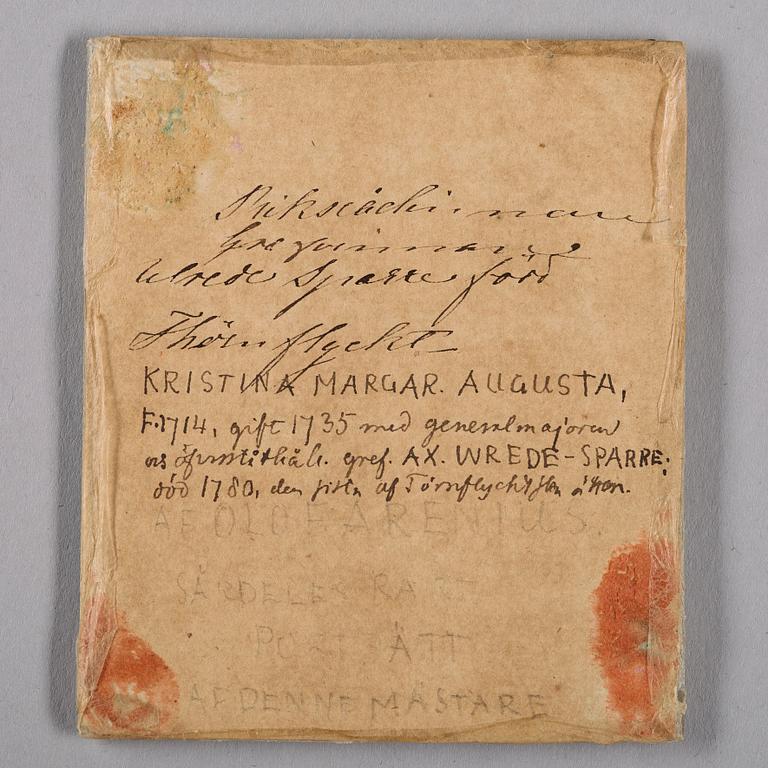 Grefvinnan
Wrede Sparre född
Thörnflycht
KRISTINA MARGAR. AUGUSTA,
F. 1714, gift 1735 med generalmajoren
gref. AX. WREDE-SPARRE;
död 1780, den sista af Törnflychtska ätten.
AF OLOF ARENIUS.
SÄRDELES RART
PORTRÄTT
AF DENNE MÄSTARE